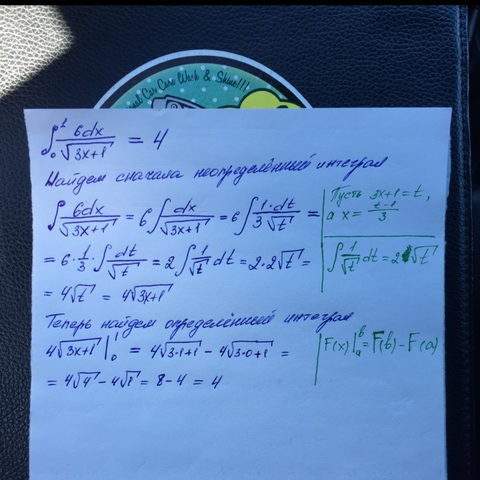 Car Care Wash & Shine!!!
∫₀¹ 6dx/√(3x+1) = 4
Найдем сначала неопределённый интеграл
∫ 6dx/√(3x+1) = 6 ∫ dx/√(3x+1) = 6 ∫ 1·dt/(3√t) =
Пусть 3x+1=t,
а x = (t-1)/3
= 6 · 1/3 · ∫ dt/√t = 2 ∫ 1/√t dt = 2·2√t =
∫ 1/√t dt = 2√t
= 4√t = 4√(3x+1)
Теперь найдем определённый интеграл
4√(3x+1) |₀¹ = 4√(3·1+1) - 4√(3·0+1) =
F(x)|ₐᵇ = F(b) - F(a)
= 4√4 - 4√1 = 8 - 4 = 4